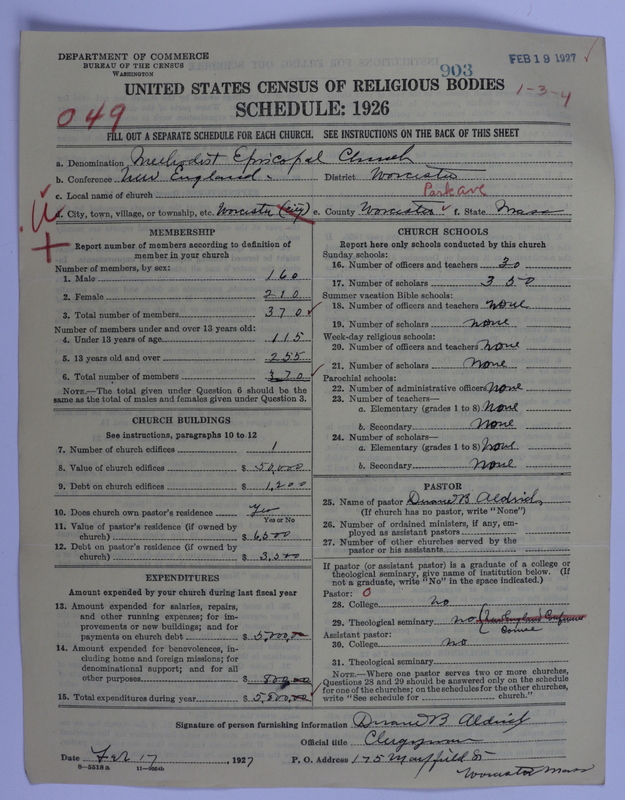 DEPARTMENT OF COMMERCE
BUREAU OF THE CENSUS
WASHINGTON
903
FEB 19 1927
UNITED STATES CENSUS OF RELIGIOUS BODIES
1-3-4
SCHEDULE: 1926
049
FILL OUT A SEPARATE SCHEDULE FOR EACH CHURCH. SEE INSTRUCTIONS ON THE BACK OF THIS SHEET
a. Denomination Methodist Episcopal Church
b. Conference New England. District Worcester
c. Local name of church Park ave
d. City, town, village, or township, etc. Worcester (city) e. County Worcester f. State Mass
MEMBERSHIP
Report number of members according to definition of
member in your church
Number of members, by sex:
1. Male 160
2. Female 210
3. Total number of members 370
Number of members under and over 13 years old:
4. Under 13 years of age 115
5. 13 years old and over 255
6. Total number of members 370
NOTE.—The total given under Question 6 should be the
same as the total of males and females given under Question 3.
CHURCH BUILDINGS
See instructions, paragraphs 10 to 12
7. Number of church edifices 1
8. Value of church edifices $ 50,000
9. Debt on church edifices $ 1,200
10. Does church own pastor's residence? Yes
Yes or No
11. Value of pastor's residence (if owned by
church) $ 6,500
12. Debt on pastor's residence (if owned by
church) $ 3,500
EXPENDITURES
Amount expended by your church during last fiscal year
13. Amount expended for salaries, repairs,
and other running expenses; for im-
provements or new buildings; and for
payments on church debt $ 5,000,00
14. Amount expended for benevolences, in-
cluding home and foreign missions; for
denominational support; and for all
other purposes $ 800,00
15. Total expenditures during year $ 5,800,00
CHURCH SCHOOLS
Report here only schools conducted by this church
Sunday schools:
16. Number of officers and teachers 30
17. Number of scholars 350
Summer vacation Bible schools:
18. Number of officers and teachers none
19. Number of scholars none
Week-day religious schools:
20. Number of officers and teachers None
21. Number of scholars None
Parochial schools:
22. Number of administrative officers None
23. Number of teachers—
a. Elementary (grades 1 to 8) None
b. Secondary None
24. Number of scholars—
a. Elementary (grades 1 to 8) None
b. Secondary None
PASTOR
25. Name of pastor Duane B Aldrich
(If church has no pastor, write "None")
26. Number of ordained ministers, if any, em-
ployed as assistant pastors
27. Number of other churches served by the
pastor or his assistants
If pastor (or assistant pastor) is a graduate of a college or
theological seminary, give name of institution below. (If
not a graduate, write "No" in the space indicated.)
Pastor: 0
28. College no
29. Theological seminary no (New England Conference
Course
Assistant pastor:
30. College no
31. Theological seminary
NOTE.—Where one pastor serves two or more churches,
Questions 28 and 29 should be answered only on the schedule
for one of the churches; on the schedules for the other churches,
write "See schedule for church."
Signature of person furnishing information Duane B Aldrich
Official title Clergyman
Date Feb 17, 1927 P. O. Address 175 Mayfield St
Worcester Mass
8—5518a